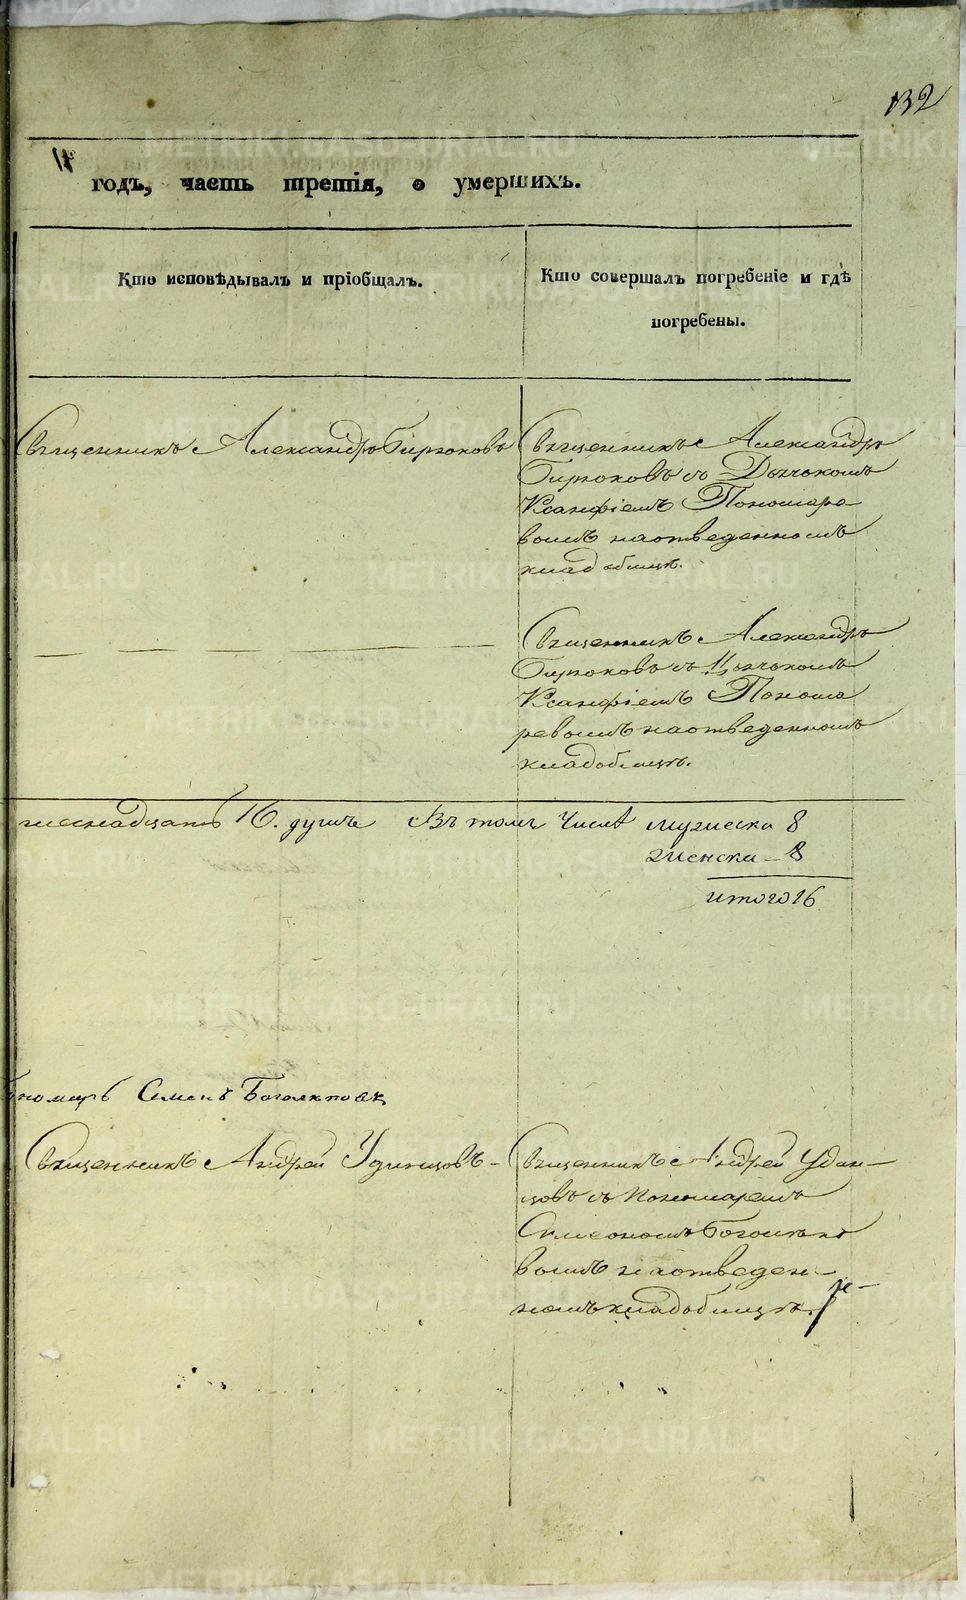 132
годъ, часть третія, о умершихъ.
Кто исповѣдывалъ и пріобщалъ.
Кто совершалъ погребеніе и гдѣ
погребены.
Священникъ Александръ Бирюковъ
Священникъ Александръ
Бирюковъ съ Дьячкомъ
Ксанфіемъ Пономаре-
вымъ на отведенномъ
кладбищѣ.
Священникъ Александръ
Бирюковъ съ Дьячкомъ
Ксанфіемъ Понома
ревымъ на отведенномъ
кладбищѣ.
шеснадцать 16. душъ въ томъ числѣ мужеска 8
женска - 8
итого 16
Семенъ
Священникъ Андрей Удинцовъ -
Священникъ Андрей Удин-
цовъ съ пономаремъ
Симеономъ
вымъ на отведен-
номъ кладбищѣ.
METRIKI.GASO-URAL.RU